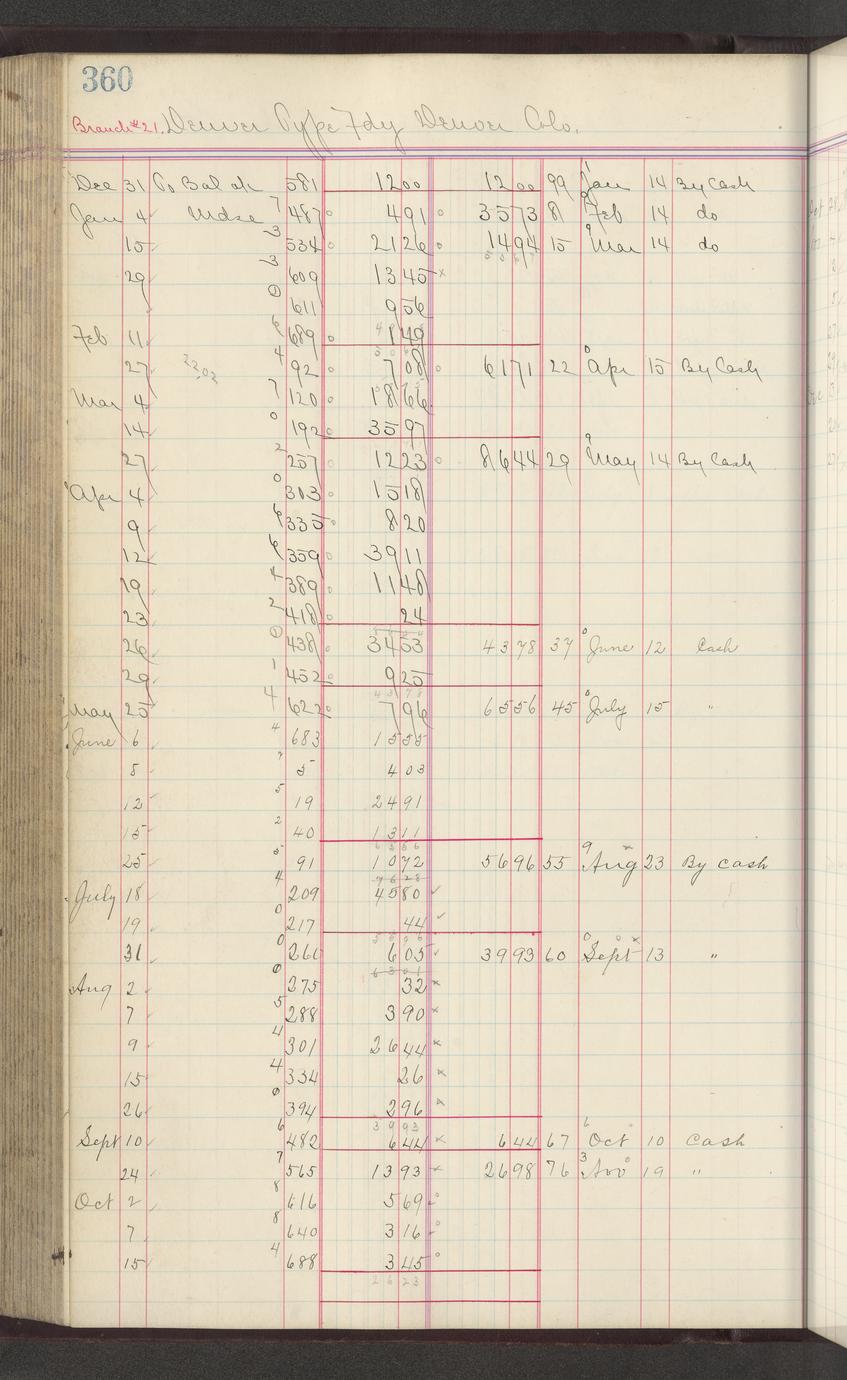 360
Branch #21. Denver Type Fdy Denver Colo.
Dec 31 To Bal ok 581 12 00 12 00 99 Jan 14 By Cash
Jan 4 Mdse 7 487 4 91 35 73 81 Feb 14 do
15 3 534 21 26 14 94 15 Mar 14 do
29 3 609 13 45 x
1 611 9 56
Feb 11 6 689 1 49
27 4 92 7 08 61 71 22 Apr 15 By Cash
Mar 4 7 120 18 66
14 0 192 35 97
27 2 257 12 23 86 44 29 May 14 By Cash
Apr 4 0 303 15 18
9 6 335 8 20
12 6 359 39 11
19 4 389 11 48
23 2 418 24
26 1 438 34 53 43 78 37 June 12 Cash
29 1 452 9 25
43 78
May 25 4 622 7 96 65 56 45 July 15 "
June 6 4 683 15 55
8 7 5 4 03
12 5 19 24 91
15 2 40 13 11
65 56
25 5 91 10 72 56 96 55 Aug 23 By Cash
76 28
July 18 4 209 45 80
19 0 217 44
31 0 260 6 05 39 93 60 Sept 13 "
63 01
Aug 2 0 275 32 x
7 5 288 3 90 x
9 4 301 26 44 x
15 4 334 26 x
26 0 394 2 96 x
39 93
Sept 10 6 482 6 44 x 6 44 67 Oct 10 Cash
24 7 565 13 93 x 26 98 76 Nov 19 "
Oct 2 8 616 5 69
7 8 640 3 16
15 4 688 3 45
26 23